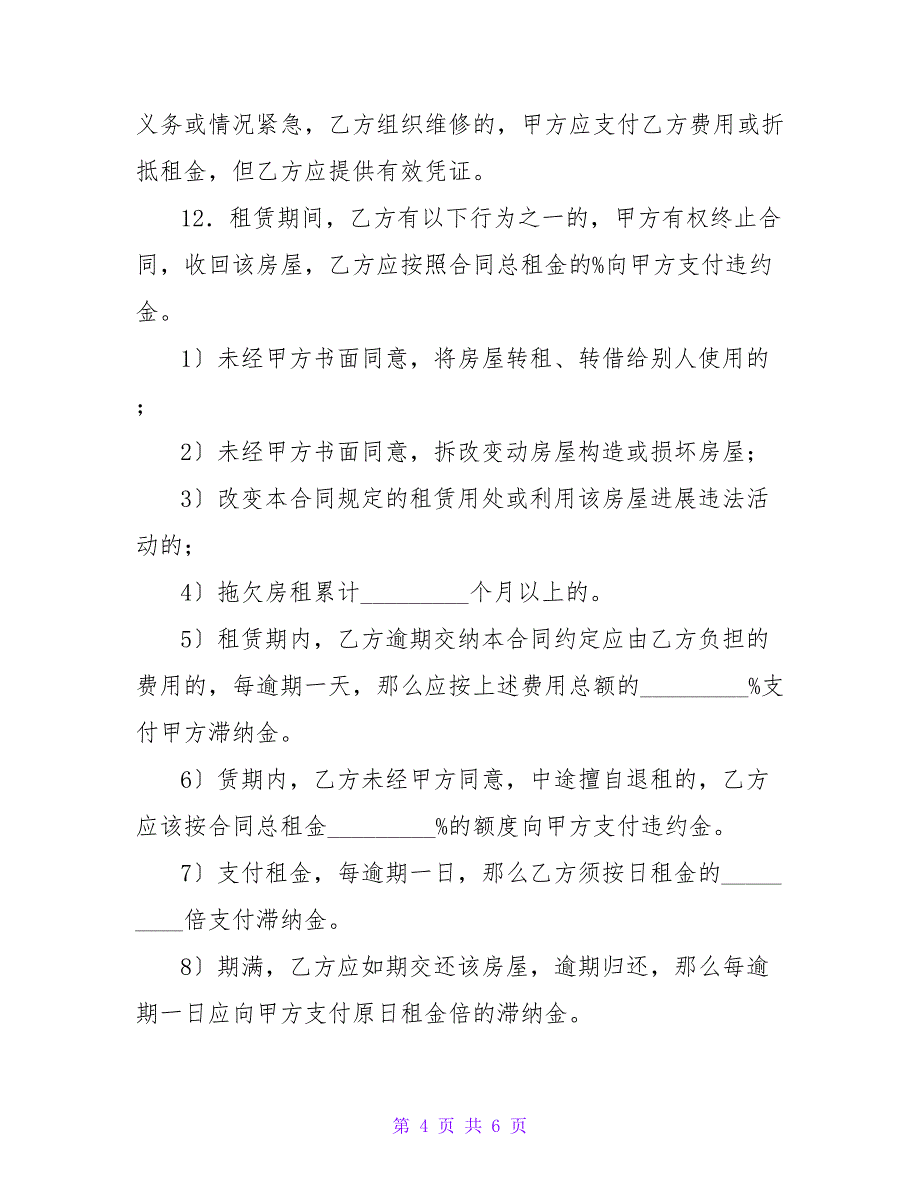 义务或情况紧急，乙方组织维修的，甲方应支付乙方费用或折
抵租金，但乙方应提供有效凭证。
12．租赁期间，乙方有以下行为之一的，甲方有权终止合
同，收回该房屋，乙方应按照合同总租金的%向甲方支付违约
金。
1〕未经甲方书面同意，将房屋转租、转借给别人使用的
；
2〕未经甲方书面同意，拆改变动房屋构造或损坏房屋；
3〕改变本合同规定的租赁用处或利用该房屋进展违法活
动的；
4〕拖欠房租累计_________个月以上的。
5〕租赁期内，乙方逾期交纳本合同约定应由乙方负担的
费用的，每逾期一天，那么应按上述费用总额的_________%支
付甲方滞纳金。
6〕赁期内，乙方未经甲方同意，中途擅自退租的，乙方
应该按合同总租金_________%的额度向甲方支付违约金。
7〕支付租金，每逾期一日，那么乙方须按日租金的_____
____倍支付滞纳金。
8〕期满，乙方应如期交还该房屋，逾期归还，那么每逾
期一日应向甲方支付原日租金倍的滞纳金。
第 4 页 共 6 页